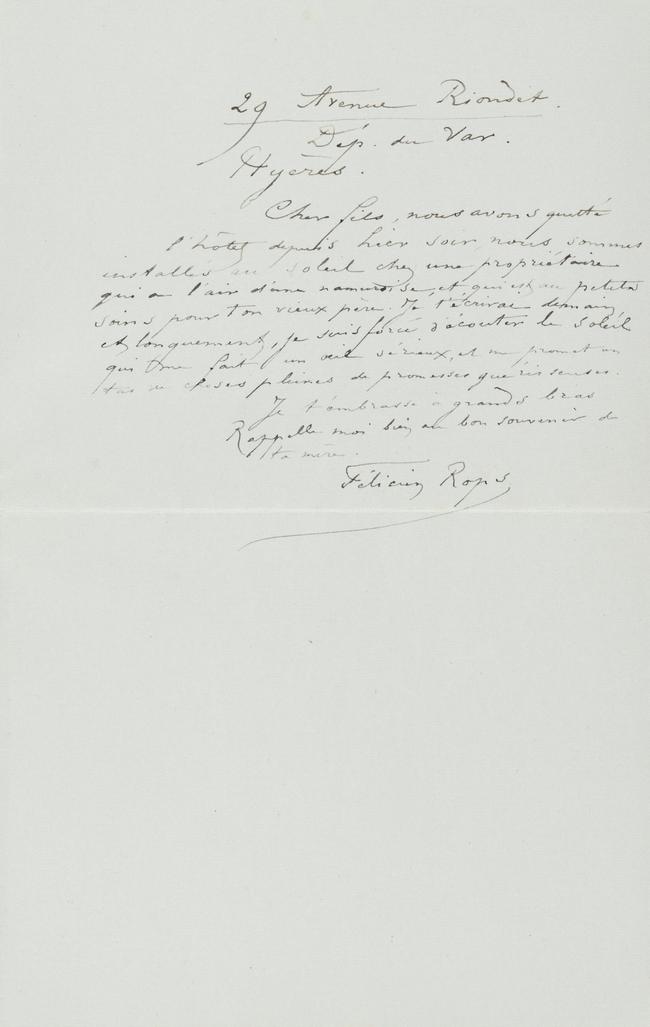 29 Avenue Riondet.
Dép. du Var.
Hyères.
Cher fils, nous avons quitté
l'hôtel depuis hier soir, nous sommes
installés au soleil chez une propriétaire
qui a l'air d'une namuroise, et qui est au petits
soins pour ton vieux père. Je t'écrirai demain
et longuement, je suis forcé d'écouter le soleil
qui me fait un œil sérieux, et me promet un
tas de choses pleines de promesses guérisseuses.
Je t'embrasse à grands bras
Rappelle moi bien au bon souvenir de
ta mère.
Félicien Rops